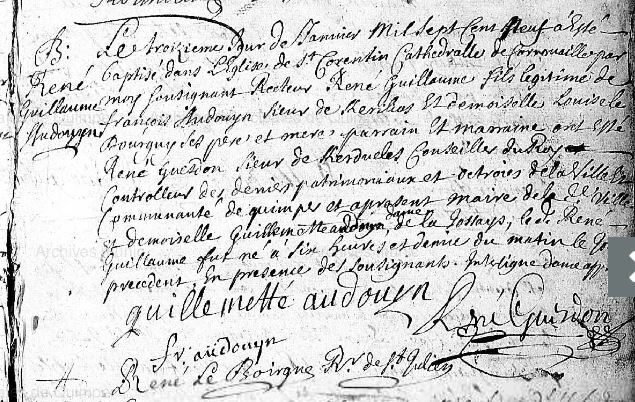 B:
René
Guillaume
Audouyn
Le troizieme Jour de Janvier Mil Sept Cent Neuf a Esté
baptisé dans L'Eglise de St Corentin Cathedralle de Cornouaille par
moy Soussignant Recteur René Guillaume fils legitime de
françois Audouyn Sieur de Et demoiselle Louise le
Bourgne ses pere et mere parrain Et marraine ont esté
René Guesdon Sieur de Conseiller du Roy
Controlleur des deniers patrimoniaux et octrois de la Ville
Communauté de quimper et apresent maire de la de Ville
et demoiselle Guillemette audouyn dame de la ; le dt René
Guillaume fut né à Six heures et demie du matin le Jour
precedent, En presence des Soussignants. Interligne dame
guillemette audouyn
René Guesdon
fr: audouyn
René Le Borgne Rr. de St